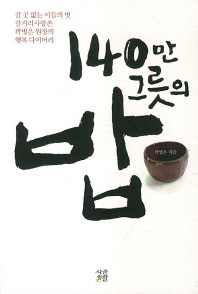 갈 곳 없는 이들의 벗
갈거리사랑촌
곽병은 원장의
행복 다이어리
140만
그릇의
밥
곽병은 지음